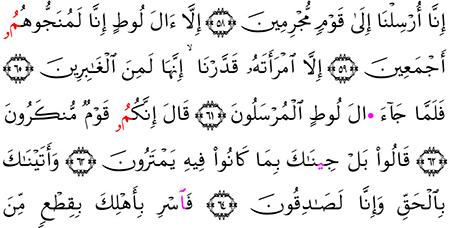 إِنَّا أُرْسِلْنَا إِلَىٰ قَوْمٍ مُّجْرِمِينَ ﴿٥٨﴾ إِلَّا ءَالَ لُوطٍ إِنَّا لَمُنَجُّوهُمُۥ
أَجْمَعِينَ ﴿٥٩﴾ إِلَّا امْرَأَتَهُۥ قَدَّرْنَا ۙ إِنَّهَا لَمِنَ الْغَابِرِينَ ﴿٦٠﴾
فَلَمَّا جَآءَ •الَ لُوطٍ الْمُرْسَلُونَ ﴿٦١﴾ قَالَ إِنَّكُمُۥ قَوْمٌ مُّنكَرُونَ
﴿٦٢﴾ قَالُوا۟ بَلْ جِينَاكَ بِمَا كَانُوا۟ فِيهِ يَمْتَرُونَ ﴿٦٣﴾ وَأَتَيْنَاكَ
بِالْحَقِّ وَإِنَّا لَصَادِقُونَ ﴿٦٤﴾ فَاسْرِ بِأَهْلِكَ بِقِطْعٍ مِّنَ